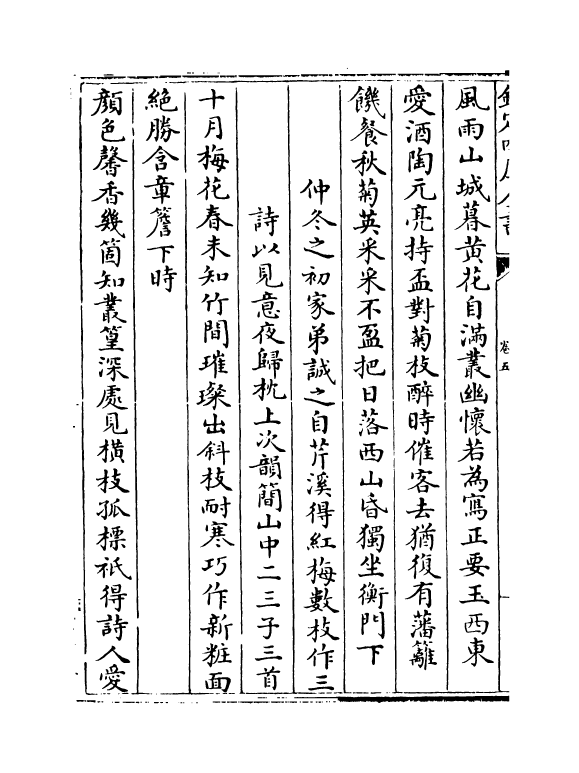 欽定四庫全書
卷五
風雨山城暮黄花自滿叢幽懷若為寫正要玉西東
愛酒陶元亮持盃對菊枝醉時催客去猶復有藩籬
饑餐秋菊英采采不盈把日落西山昏獨坐衡門下
仲冬之初家弟誠之自芹溪得紅梅數枝作三
詩以見意夜歸枕上次韻簡山中二三子三首
十月梅花春未知竹間璀璨出斜枝耐寒巧作新粧面
絶勝含章簷下時
顔色馨香幾箇知叢篁深處見橫枝孤標祇得詩人愛